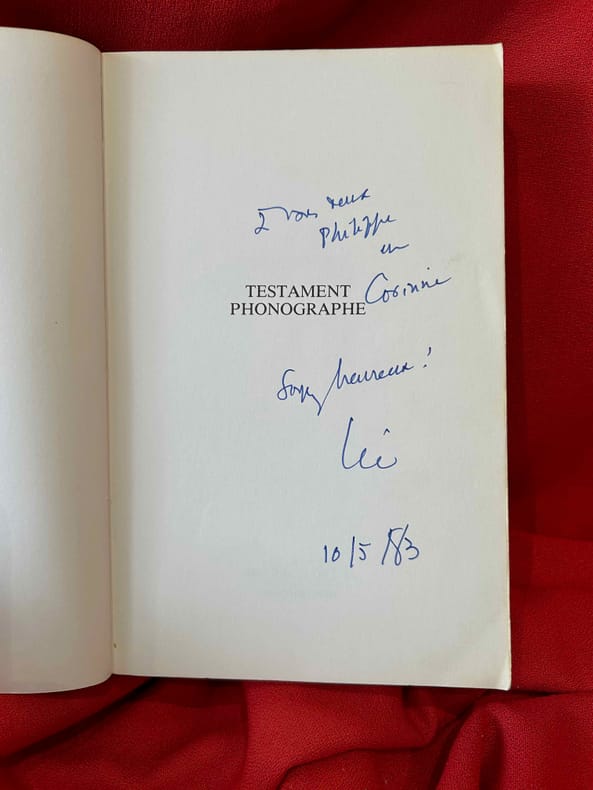 à vous deux
Philippe
et
Corinne
TESTAMENT
PHONOGRAPHE
Soyez heureux !
Léo
10/5/83